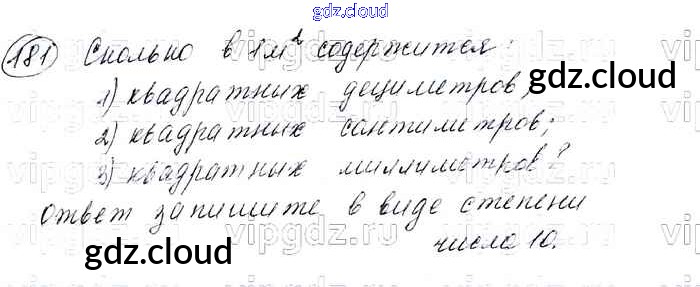 gdz.cloud
181 Сколько в 1м² содержится:
1) квадратных дециметров;
gdz.cloud
2) квадратных сантиметров;
3) квадратных миллиметров?
ответ запишите в виде степени
gdz.cloud
числа 10.